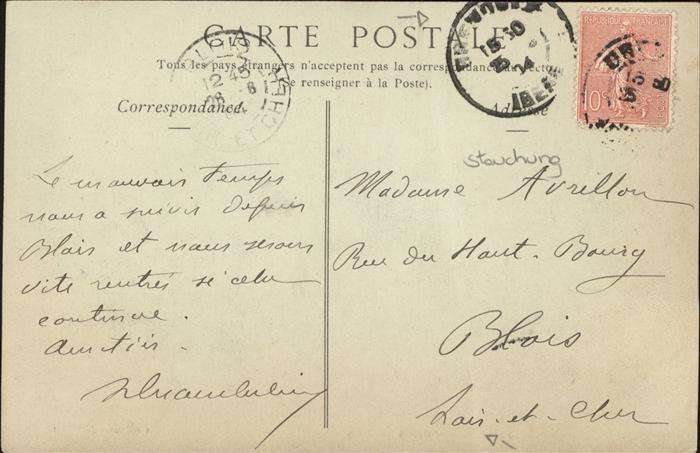 CARTE POSTALE
Tous les pays étrangers n'acceptent pas la correspondance au recto
(se renseigner à la Poste).
Correspondance
Le mauvais temps
nous a suivis depuis
Blois et nous serons
vite rentrés si cela
continue.
Amitiés.
Adresse
Stauchung
Madame Avrillon
Rue du Haut-Bourg
Blois
Loir-et-Cher
REPUBLIQUE FRANÇAISE
10
15 30
12 45